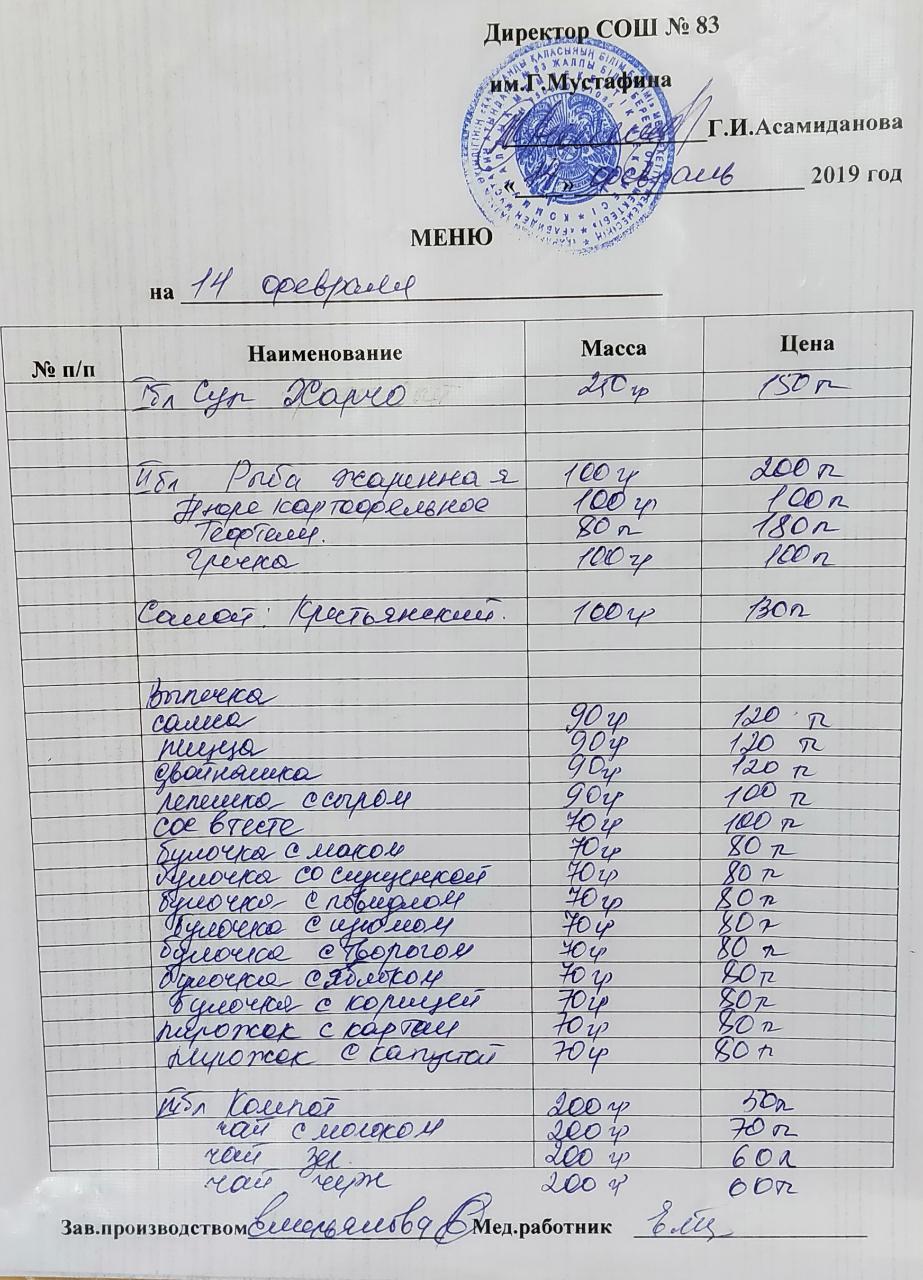 Директор СОШ № 83
им.Г.Мустафина
Г.И.Асамиданова
« 14 » февраль 2019 год
МЕНЮ
на 14 февраля
№ п/п Наименование Масса Цена
I бл Суп Харчо 250 гр 150 т
II бл Рыба жаренная 100 гр 200 т
Пюре картофельное 100 гр 100 т
Тефтели. 80 г 180 т
Гречка 100 гр 100 т
Салат: Крестьянский. 100 гр 130 т
Выпечка
самса 90 гр 120 т
пицца 90 гр 120 т
двойняшка 90 гр 120 т
лепешка с сыром 90 гр 100 т
сос в тесте 70 гр 100 т
булочка с маком 70 гр 80 т
булочка со сгущенкой 70 гр 80 т
булочка с повидлом 70 гр 80 т
булочка с изюмом 70 гр 80 т
булочка с творогом 70 гр 80 т
булочка с яблоком 70 гр 80 т
булочка с корицей 70 гр 80 т
пирожок с картош 70 гр 80 т
пирожок с капустой 70 гр 80 т
III бл Компот 200 гр 50 т
чай с молоком 200 гр 70 т
чай зел. 200 гр 60 т
чай черн 200 г 60 т
Зав.производством Емельянова Мед.работник